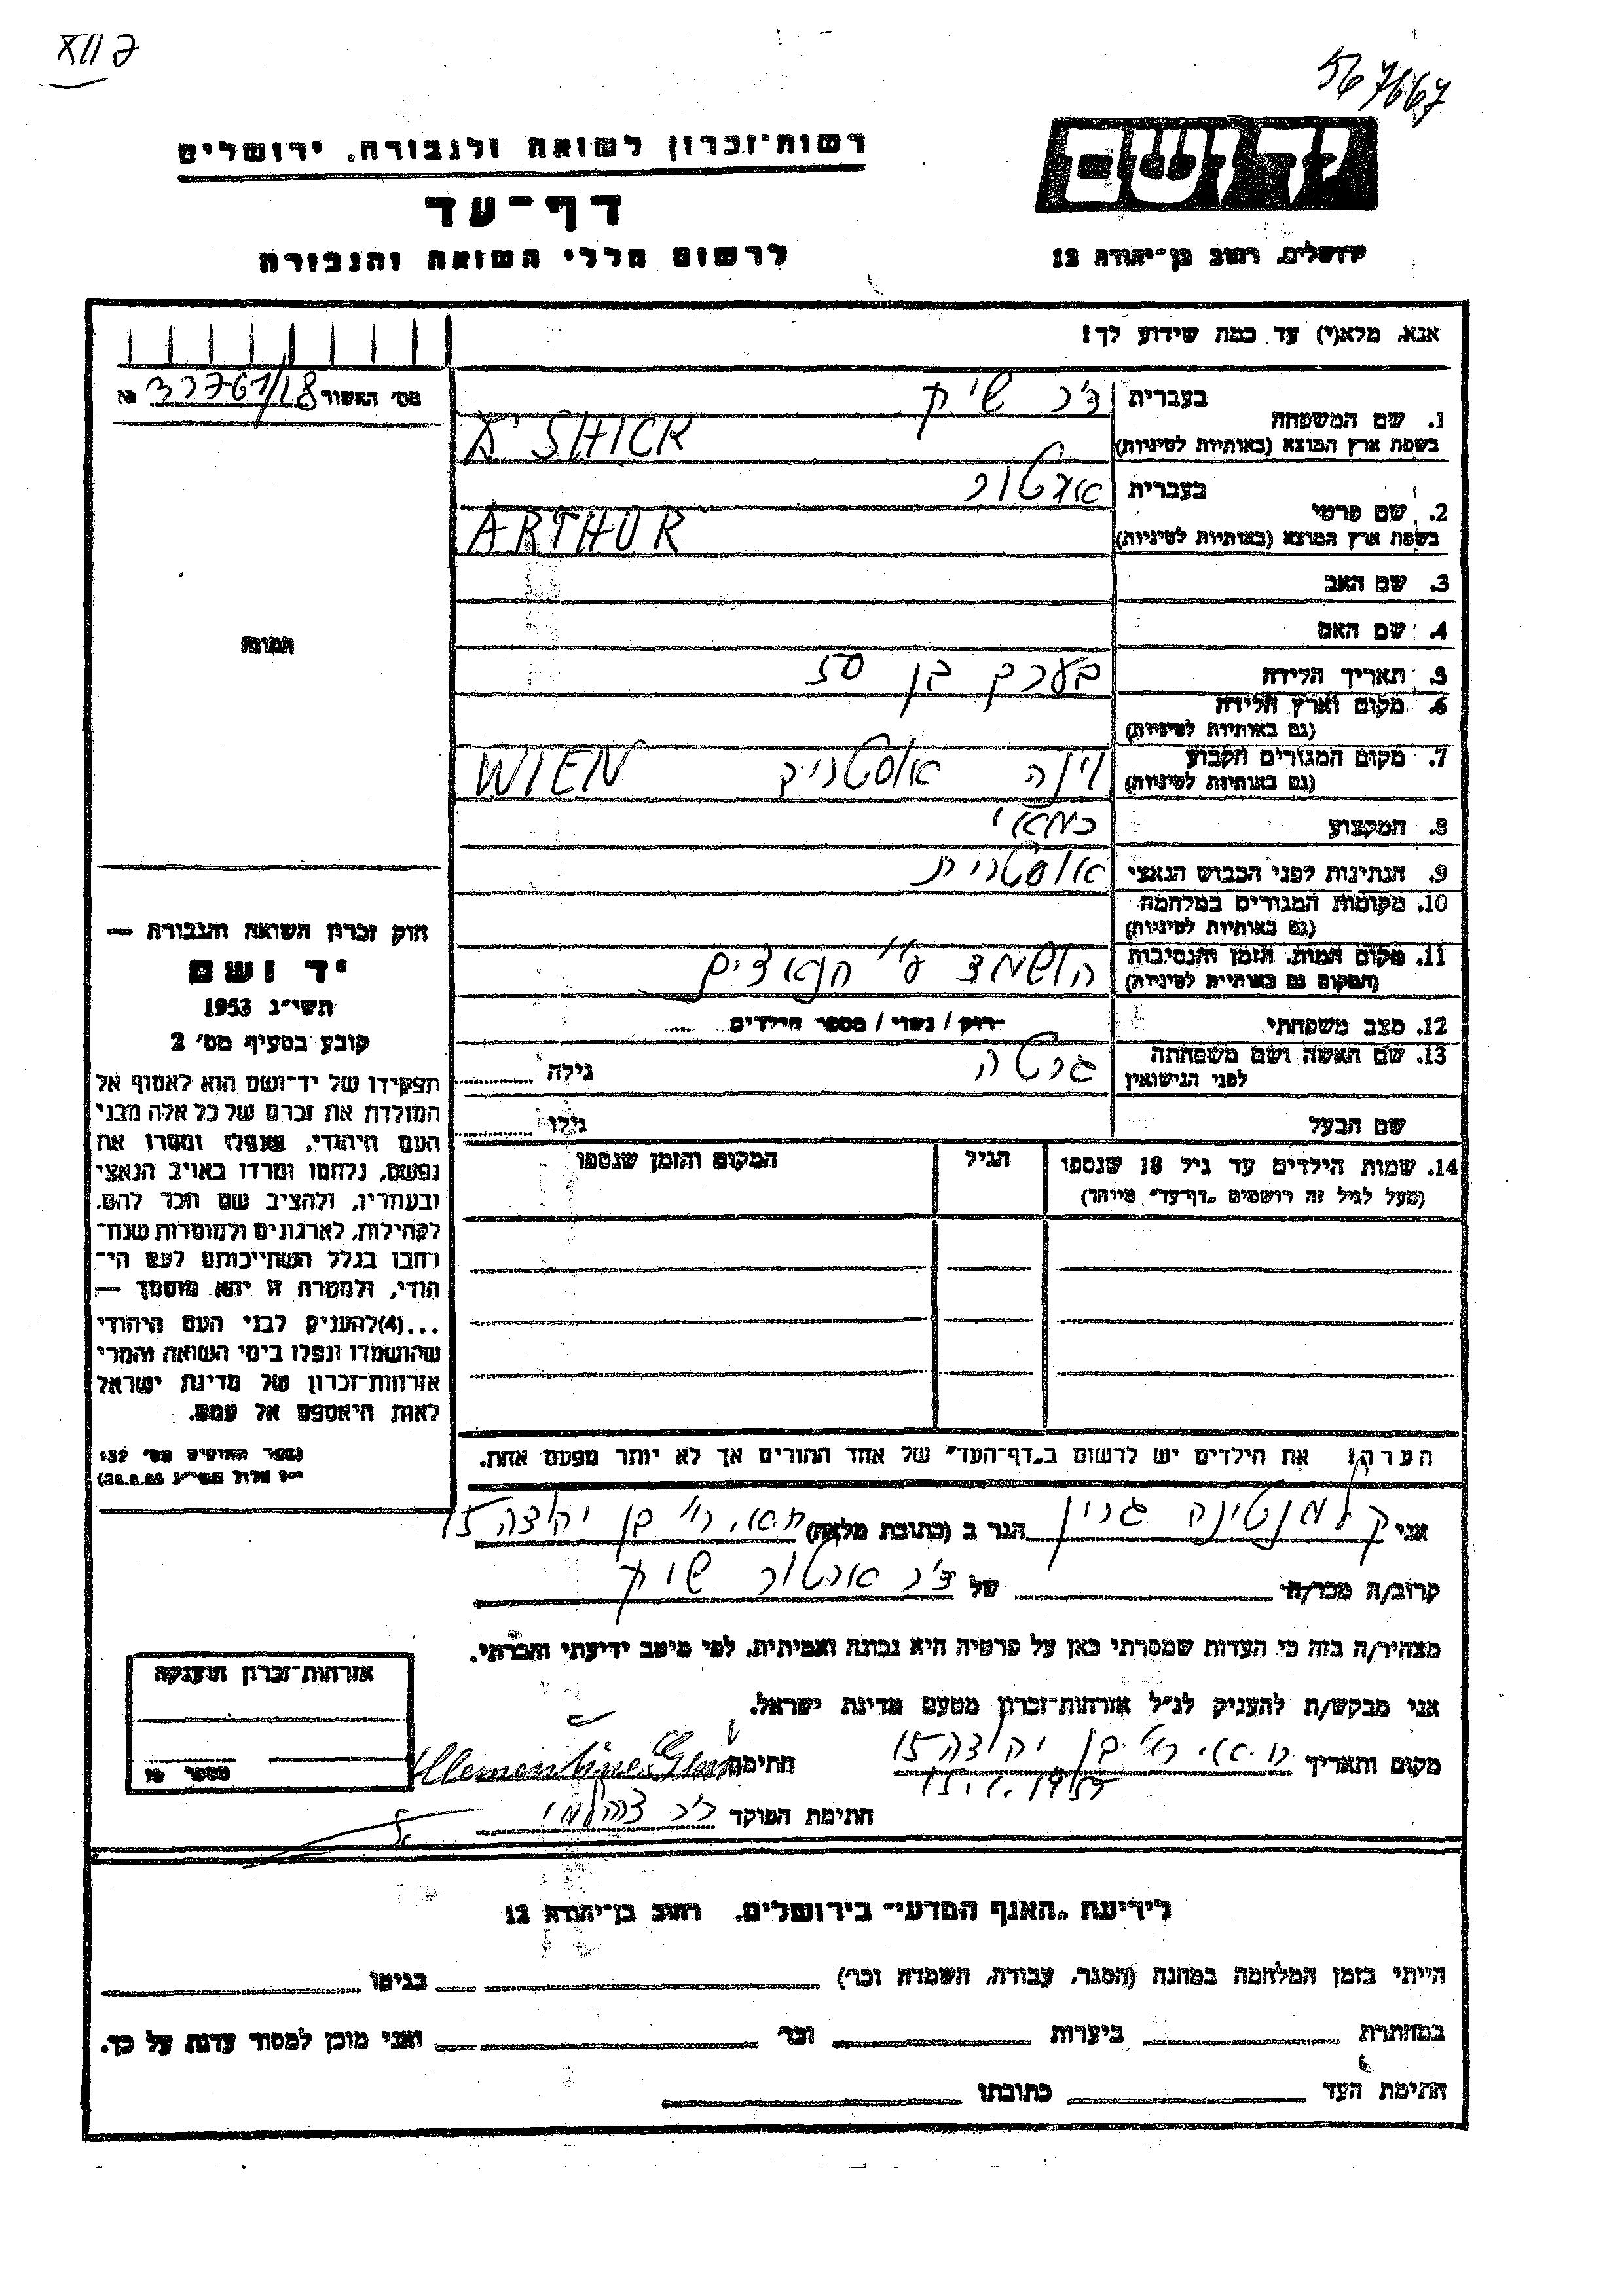 XII ק
567667
רשות־זכרון לשואה ולגבורה, ירושלים
דף־עד
לרשום חללי השואה והגבורה
יד ושם
ירושלים, רחוב בן־יהודה 12
אנא, מלא(י) עד כמה שידוע לך!
מס׳ האשור 33761/18
1. שם המשפחה
בעברית
ד״ר שיק
בשפת ארץ המוצא (באותיות לטיניות)
SHICK
2. שם פרטי
בעברית
ארטור
בשפת ארץ המוצא (באותיות לטיניות)
ARTHUR
3. שם האב
4. שם האם
5. תאריך הלידה
בערך בן 50
6. מקום וארץ הלידה
(גם באותיות לטיניות)
7. מקום המגורים הקבוע
(גם באותיות לטיניות)
וינה אוסטריה WIEN
8. המקצוע
9. הנתינות לפני הכבוש הנאצי
אוסטרית
10. מקומות המגורים במלחמה
(גם באותיות לטיניות)
11. מקום המות, הזמן והנסיבות
(המקום גם באותיות לטיניות)
הושמד ע״י הנאצים
12. מצב משפחתי
רווק / נשוי / מספר הילדים
13. שם האשה ושם משפחתה
לפני הנישואין
גרטה
גילה
שם הבעל
גילו
14. שמות הילדים עד גיל 18 שנספו
(מעל לגיל זה רושמים „דף־עד״ מיוחד)
הגיל
המקום והזמן שנספו
תמונה
חוק זכרון השואה והגבורה —
יד ושם
תשי״ג 1953
קובע בסעיף מס׳ 2
תפקידו של יד־ושם הוא לאסוף אל
המולדת את זכרם של כל אלה מבני
העם היהודי, שנפלו ומסרו את
נפשם, נלחמו ומרדו באויב הנאצי
ובעוזריו, ולהציב שם וזכר להם,
לקהילות, לארגונים ולמוסדות שנח־
רבו בגלל השתייכותם לעם הי־
הודי, ולמטרה זו יהא מוסמך —
...(4)להעניק לבני העם היהודי
שהושמדו ונפלו בימי השואה והמרי
אזרחות־זכרון של מדינת ישראל
לאות היאספם אל עמם.
(ספר החוקים מס׳ 132
הערה! את הילדים יש לרשום ב„דף־העד״ של אחד ההורים אך לא יותר מפעם אחת.
אני קלמנטינה גרין הגר ב (כתובת מלאה) ת״א, רח׳ בן יהודה 15
קרוב/ה מכר/ה של ד״ר ארטור שיק
מצהיר/ה בזה כי העדות שמסרתי כאן על פרטיה היא נכונה ואמיתית, לפי מיטב ידיעתי והכרתי.
אני מבקש/ת להעניק לנ״ל אזרחות־זכרון מטעם מדינת ישראל.
מקום ותאריך ת״א, רח׳ בן יהודה 15
חתימה Clementine
חתימת הפוקד
אזרחות־זכרון הוענקה
מספר
לידיעת „האגף המדעי״ בירושלים, רחוב בן־יהודה 12
הייתי בזמן המלחמה במחנה (הסגר, עבודה, השמדה וכו׳) בגיטו
במחתרת ביערות וכו׳ ואני מוכן למסור עדות על כך.
חתימת העד כתובתו